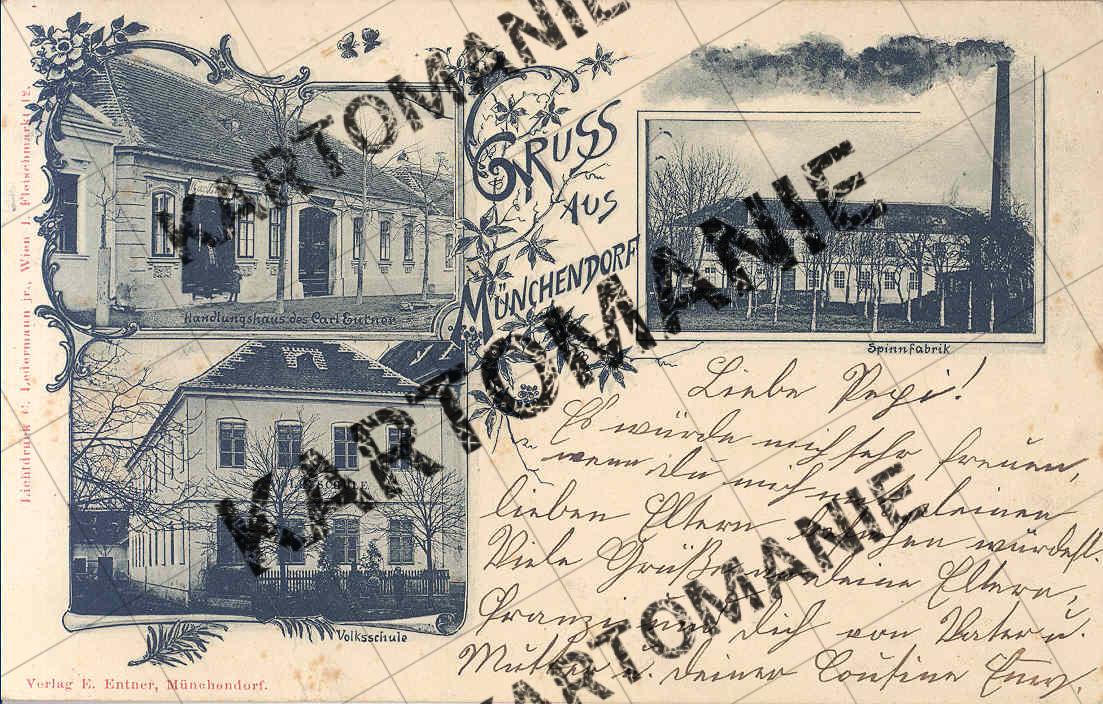 GRUSS
AUS
MÜNCHENDORF
Handlungshaus des Carl Entner
Spinnfabrik
Volksschule
Lichtdruck C. Ledermann jr., Wien I. Fleischmarkt 12.
Verlag E. Entner, Münchendorf.
Liebe Pepi!
Es würde mich sehr freuen,
wenn du mich mit deinen
lieben Eltern besuchen würdest.
Viele Grüße an deine Eltern,
Franzi und dich von Vater u.
Mutter u. deiner Cousine
KARTOMANIE
KARTOMANIE
KARTOMANIE
KARTOMANIE
KARTOMANIE